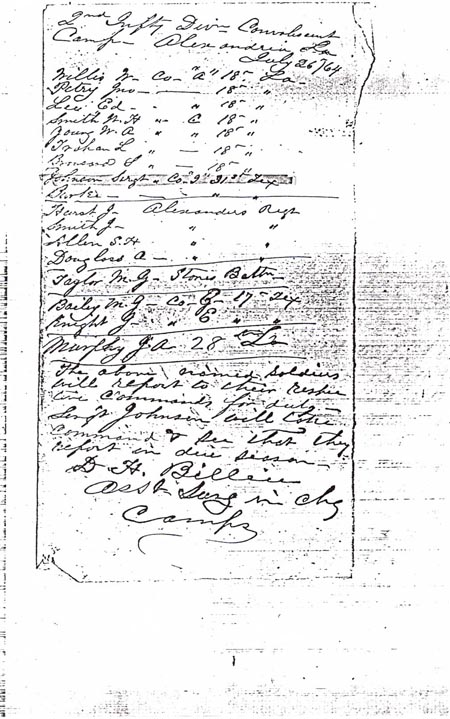 2nd Infty Divn Convalescent
Camp Alexandria La
July 26/64
Willis W- Co "A" 18" La
Petry Jno - — 18" "
Lee Ed - " 18" "
Smith W. H " C 18" "
Young W. A " " 18" "
Trahan L " — 18" "
S " — 18"
Johnson Sergt " Co "I" 31st Tex
— " "
Hurst J- Alexanders Regt
Smith J- " "
Allen S. H " "
Douglass A - " "
Taylor M. G- Stones Battn
Bailey M. G- Co- G- 17" Tex
Knight J- " E " "
Murphy J A 28th La
The above named soldiers
will report to their respec
tive Commands for duty-
Sergt Johnson will take
command & see that they
report in due season-
D. H. Billiu
Asst Surg in chg
Camp